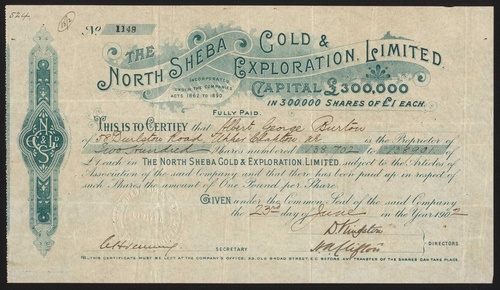 524
No 1148
THE NORTH SHEBA GOLD & EXPLORATION, LIMITED.
INCORPORATED UNDER THE COMPANIES ACTS 1862 TO 1890.
CAPITAL £300,000
IN 300000 SHARES OF £1 EACH.
FULLY PAID.
THIS IS TO CERTIFY that Albert George Burton
of 58 Durlston Road Upper Clapton is the Proprietor of
Two hundred numbered 138702 to 138901
£1 each in THE NORTH SHEBA GOLD & EXPLORATION, LIMITED. subject to the Articles of
Association of the said Company and that there has been paid up in respect of
such Shares the amount of One Pound per Share.
GIVEN under the Common Seal of the said Company
the 23rd day of June in the Year 1902
SECRETARY
DIRECTORS.
THIS CERTIFICATE MUST BE LEFT AT THE COMPANY'S OFFICE, 23, OLD BROAD STREET, E.C. BEFORE ANY TRANSFER OF THE SHARES CAN TAKE PLACE.